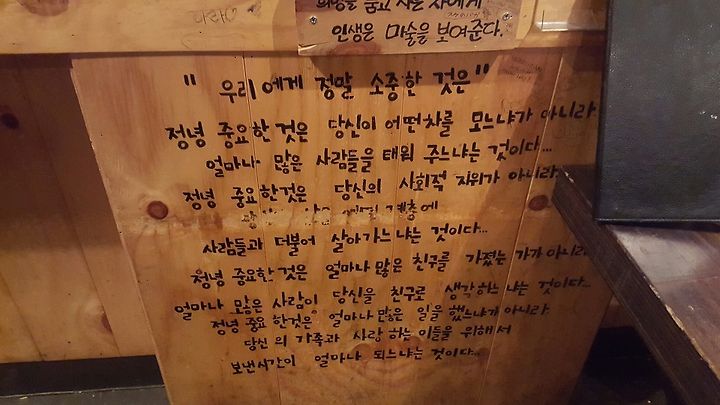 희망을 품고 사는 자에게
인생은 마술을 보여준다.
" 우리에게 정말 소중한 것은 "
정녕 중요한것은 당신이 어떤차를 모느냐가 아니라
얼마나 많은 사람들을 태워 주느냐는 것이다...
정녕 중요한것은 당신의 사회적 지위가 아니라
계층에
사람들과 더불어 살아가느냐는 것이다...
정녕 중요한것은 얼마나 많은 친구를 가졌는가가 아니라
얼마나 많은 사람이 당신을 친구로 생각하느냐는 것이다...
정녕 중요한것은 얼마나 많은 일을 했느냐가 아니라
당신의 가족과 사랑하는 이들을 위해서
보낸시간이 얼마나 되느냐는 것이다...